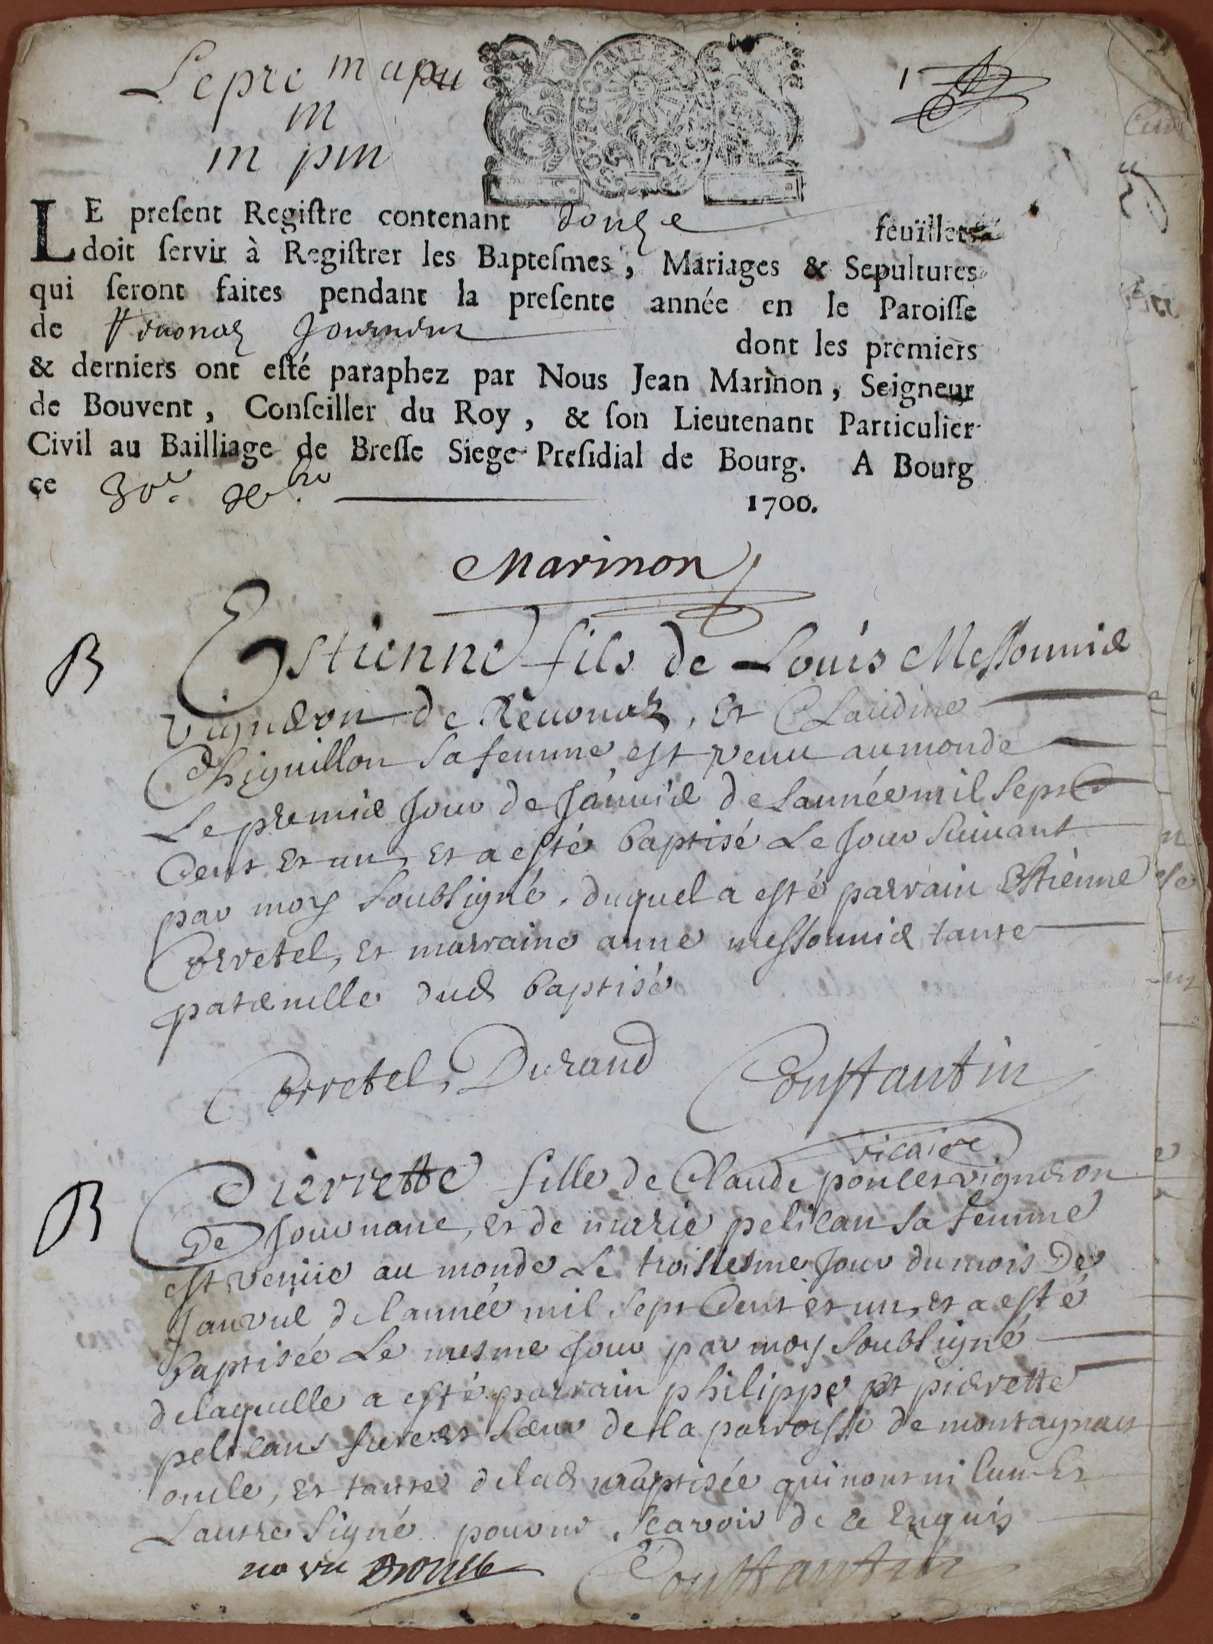 Le pre m apu
m
m pin
1
LE present Registre contenant douze feüillets
doit servir à Registrer les Baptesmes, Mariages & Sepultures
qui seront faites pendant la presente année en le Paroisse
de Reuonaz Journans dont les premiers
& derniers ont esté paraphez par Nous Jean Marinon, Seigneur
de Bouvent, Conseiller du Roy, & son Lieutenant Particulier
Civil au Bailliage de Bresse Siege Presidial de Bourg. A Bourg
ce 30e. xbre 1700.
Marinon
B
Estienne fils de Louis Messonnier
vigneron de Reuonaz, et Claudine
Chiguillon sa femme est venu au monde
Le premier Jour de Januier de Lannée mil sept
Cent et un, et a esté baptisé Le Jour suiuant
par moy soubsigné, duquel a esté parrain Estienne
Corretel, et marraine anne messonnier tante
paternelle dud baptisé
Corretel, Durand Constantin
vicaire
B
Pierrette fille de Claude poncet vigneron
De Journans, et de marie pelican sa femme
est venüe au monde Le troisiesme Jour du mois De
Januier de lannée mil sept Cent et un, et a esté
baptisée Le mesme Jour par moy soubsigné
delaquelle a esté parrain philippe et pierrette
pelicans frere et soeur de la parroisse de montagnat
oncle, et tante de lad baptisée qui nont ni lun Et
Lautre signé pour ne scavoir de ce Enquis
Constantin